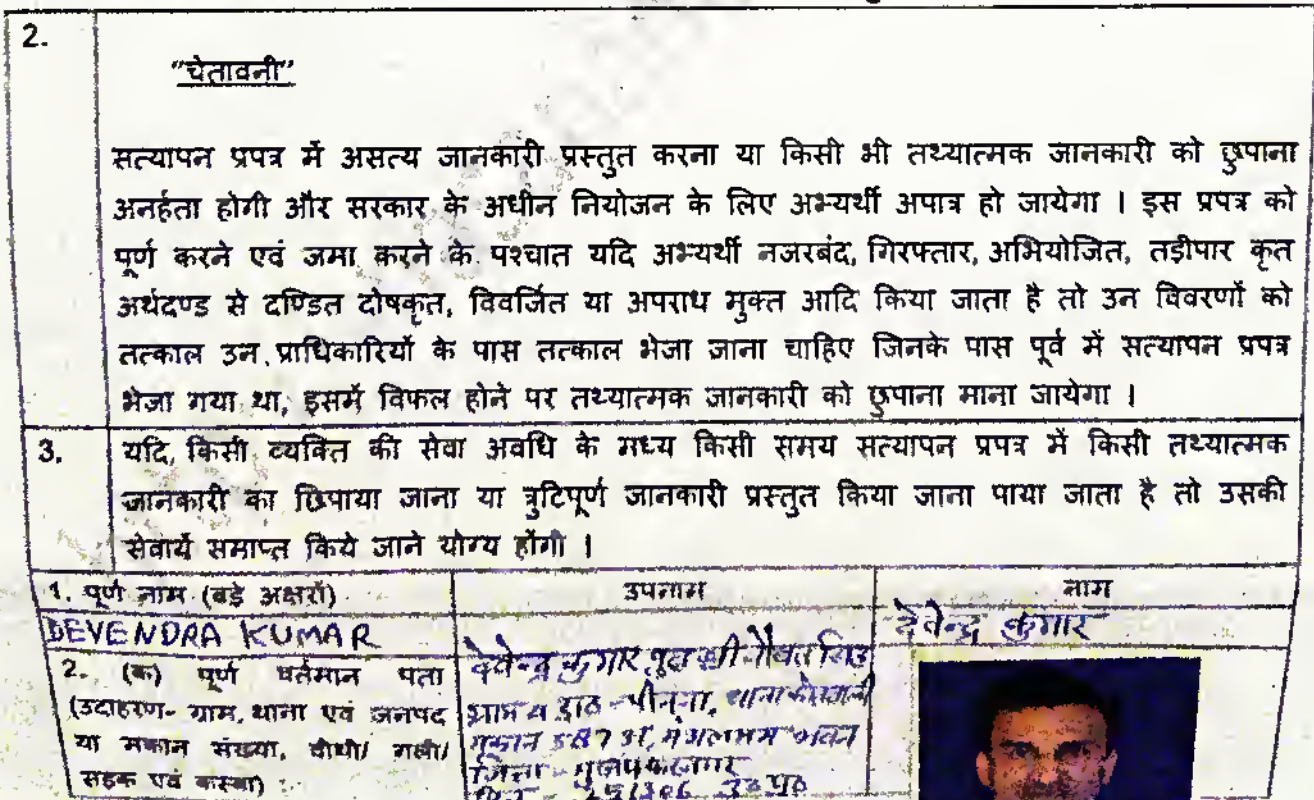 2.
"चेतावनी"
सत्यापन प्रपत्र में असत्य जानकारी प्रस्तुत करना या किसी भी तथ्यात्मक जानकारी को छुपाना
अनर्हता होगी और सरकार के अधीन नियोजन के लिए अभ्यर्थी अपात्र हो जायेगा । इस प्रपत्र को
पूर्ण करने एवं जमा करने के पश्चात यदि अभ्यर्थी नजरबंद, गिरफ्तार, अभियोजित, तड़ीपार कृत
अर्थदण्ड से दण्डित दोषकृत, विवर्जित या अपराध मुक्त आदि किया जाता है तो उन विवरणों को
तत्काल उन प्राधिकारियों के पास तत्काल भेजा जाना चाहिए जिनके पास पूर्व में सत्यापन प्रपत्र
भेजा गया था, इसमें विफल होने पर तथ्यात्मक जानकारी को छुपाना माना जायेगा ।
3. यदि, किसी व्यक्ति की सेवा अवधि के मध्य किसी समय सत्यापन प्रपत्र में किसी तथ्यात्मक
जानकारी का छिपाया जाना या त्रुटिपूर्ण जानकारी प्रस्तुत किया जाना पाया जाता है तो उसकी
सेवायें समाप्त किये जाने योग्य होंगी ।
1. पूर्ण नाम (बड़े अक्षरों) उपनाम नाम
DEVENDRA KUMAR देवेन्द्र कुमार
2. (क) पूर्ण वर्तमान पता देवेन्द्र कुमार पुत्र श्री
(उदाहरण- ग्राम, थाना एवं जनपद ग्राम व थाना
या मकान संख्या, वीथी/ गली/ मकान भवन
सड़क एवं कस्बा) : जिला